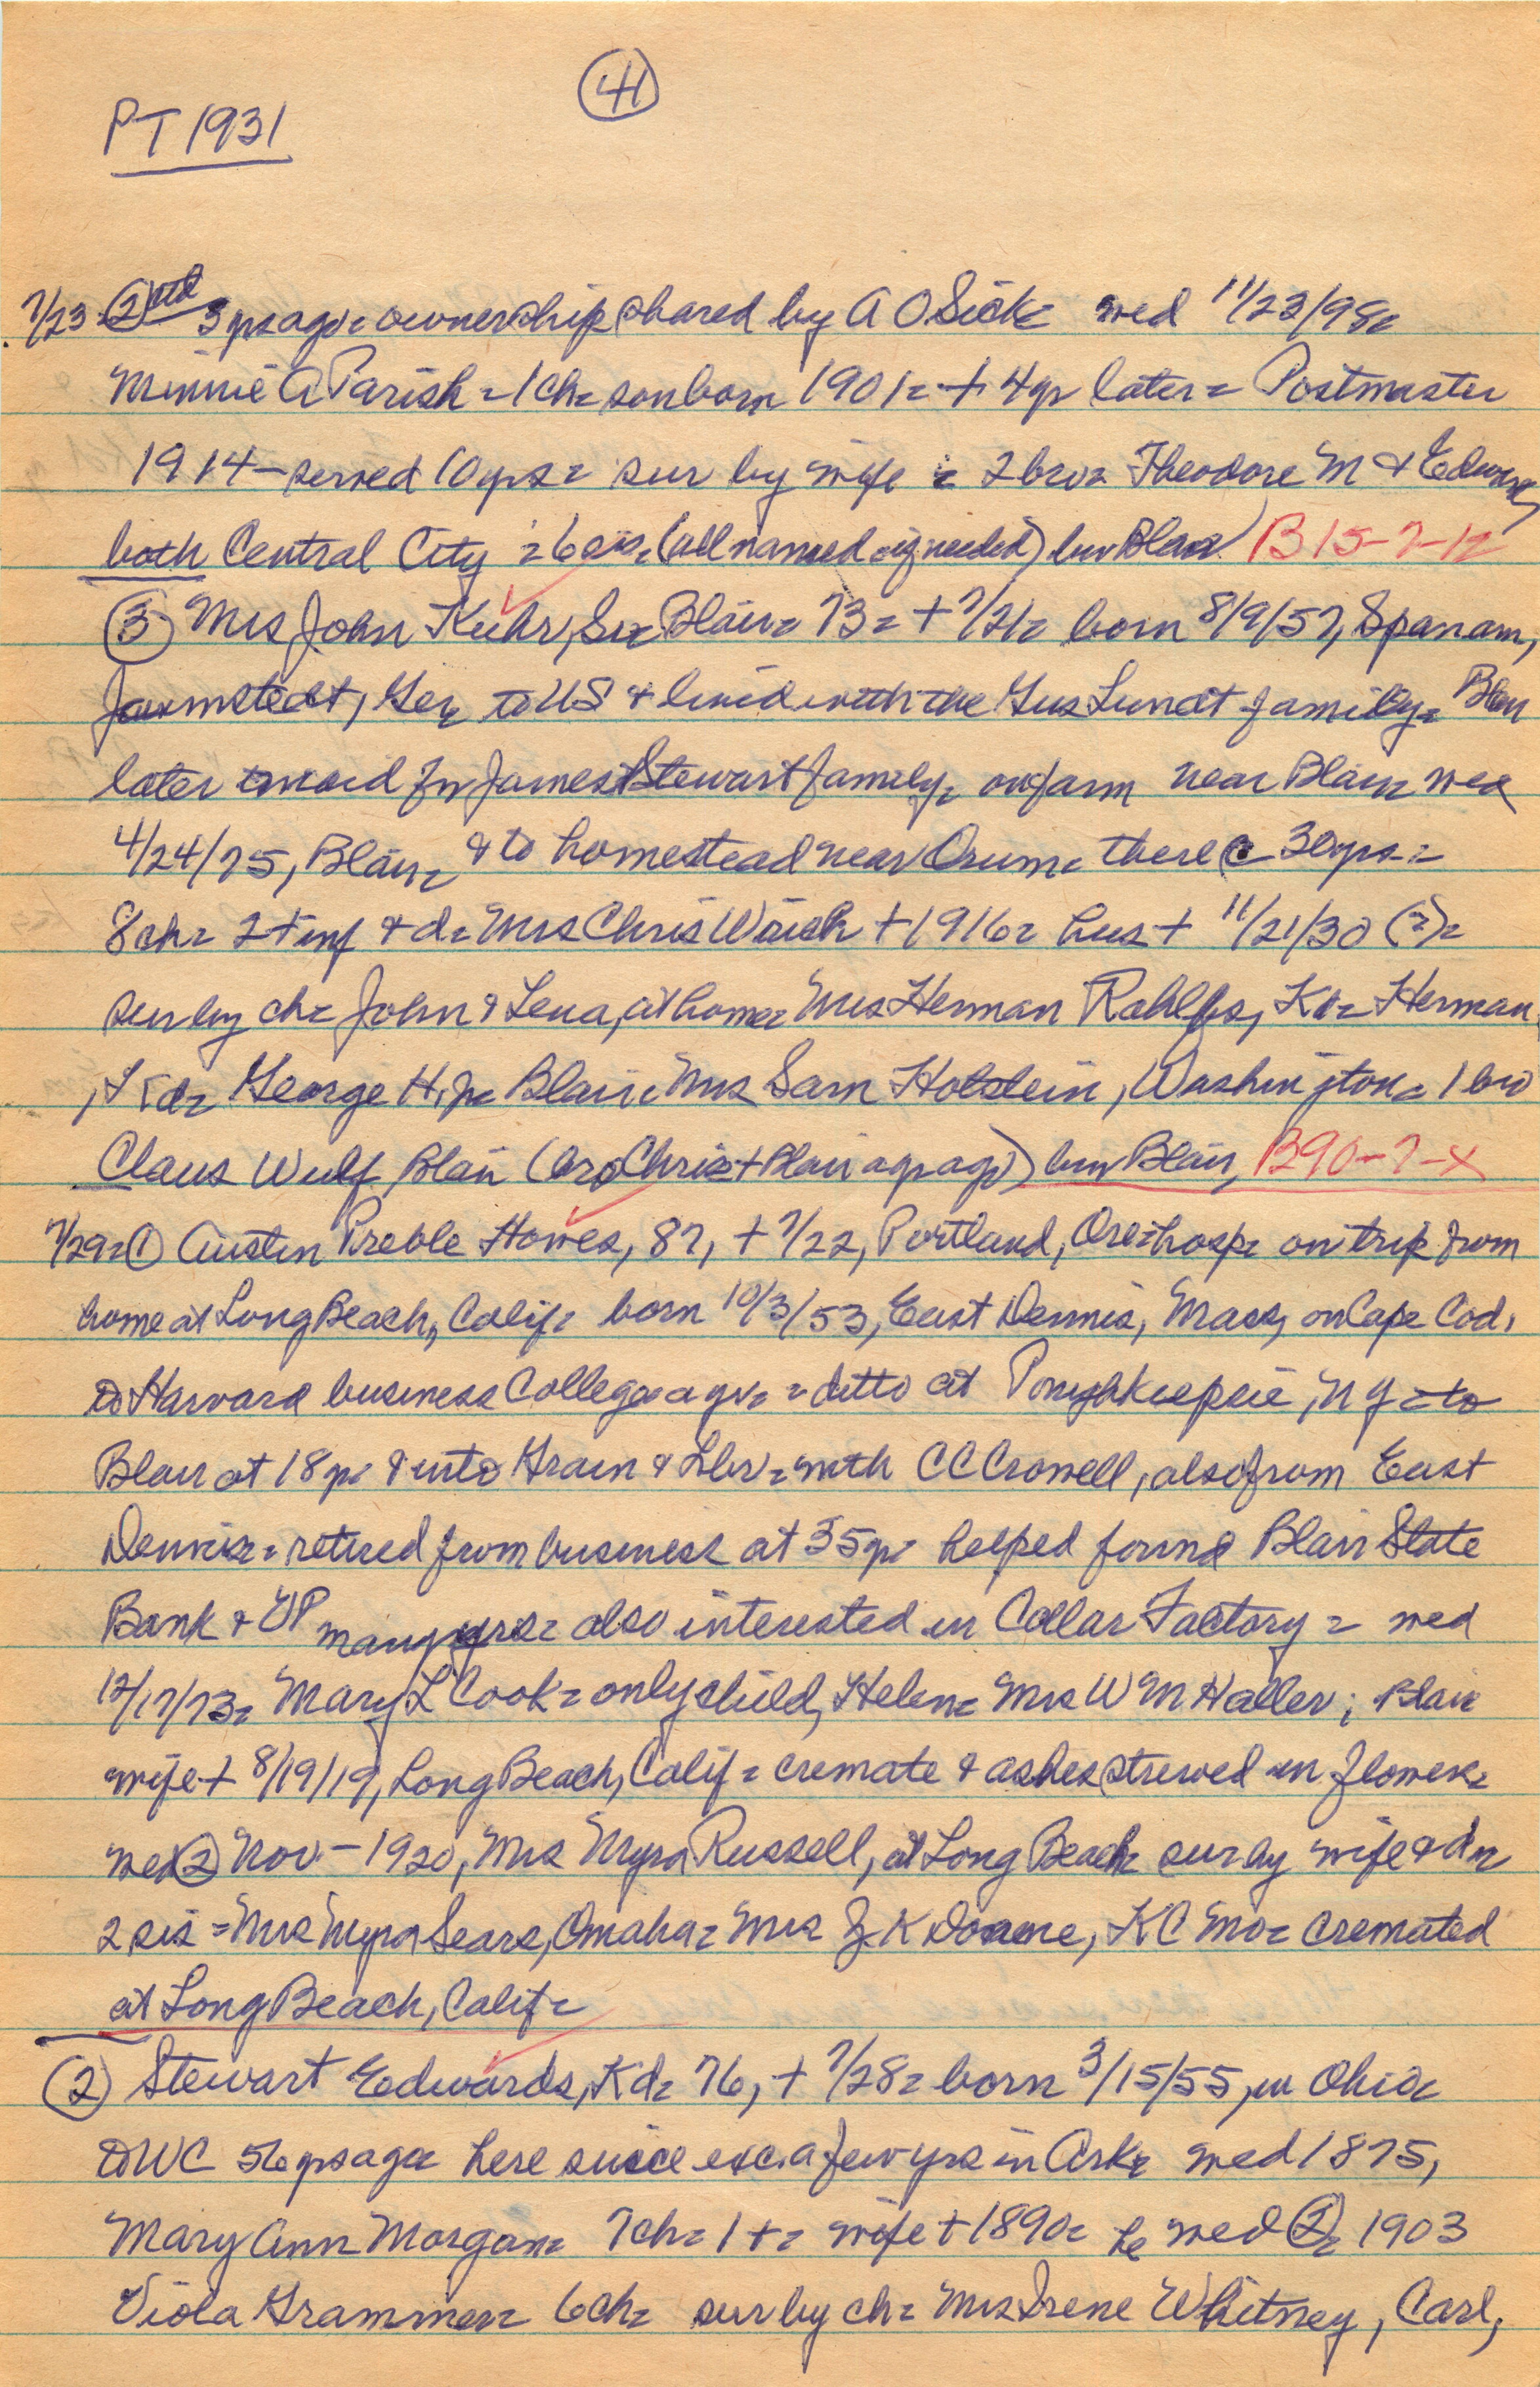 41
PT 1931
7/23 2 ctd 3 yrs ago = ownership shared by A O Sick = wed 11/23/98 =
Minnie A Parish = 1 ch = son born 1901 = + 4 yr later = Postmaster
1914 - served 10 yrs = sur by wife = 2 bro = Theodore M & Edward,
both Central City = 6 sis = (all named if needed) bur Blair B15-7-12
3 Mrs John Kuhr, Sr = Blair = 73 = + 7/21 = born 8/9/57, Spanam,
Jarmstedt, Ger = to US & lived with the Gus Lundt family = Blair
later maid for James Stewart family = on farm near Blair = wed
4/24/75, Blair = & to homestead near Orum = there c 30 yrs =
8 ch = 2 + inf & d = Mrs Chris Wrich + 1916 = hus + 11/21/30 (?) =
sur by ch = John & Lena, at home = Mrs Herman Rahlfs, Kd = Herman
, Kd = George H. Jr = Blair = Mrs Sam Holstein, Washington = 1 bro
Claus Wulf Blair (bro Chris + Blair a yr ago) bur Blair, B90-7-X
7/29 = 1 Austin Preble Howes, 87, + 7/22, Portland, Ore = hosp = on trip from
home at Long Beach, Calif = born 10/3/53, East Dennis, Mass, on Cape Cod.
to Harvard business College a yr = = ditto at Poughkeepsie, NY = to
Blair at 18 yr & into Grain & Lbr = with C C Crowell, also from East
Dennis = retired from business at 35 yr helped found Blair State
Bank & VP many yrs = also interested in Collar Factory = wed
12/17/73 = Mary L Cook = only child, Helen = Mrs W M Haller, Blair
wife + 8/19/19, Long Beach, Calif = cremate & ashes strewed in flowers =
wed 2 Nov - 1920, Mrs Myra Russell, at Long Beach sur by wife & d =
2 sis = Mrs Myra Sears, Omaha = Mrs J K Doane, KC Mo = cremated
at Long Beach, Calif =
2 Stewart Edwards, Kd = 76, + 7/28 = born 3/15/55, in Ohio =
to WC 56 yrs ago = here since exc. a few yrs in Ark = wed 1875,
Mary Ann Morgan = 7 ch = 1 + = wife + 1890 = he wed 2 = 1903
Viola Grammer = 6 ch = sur by ch = Mrs Irene Whitney, Carl,